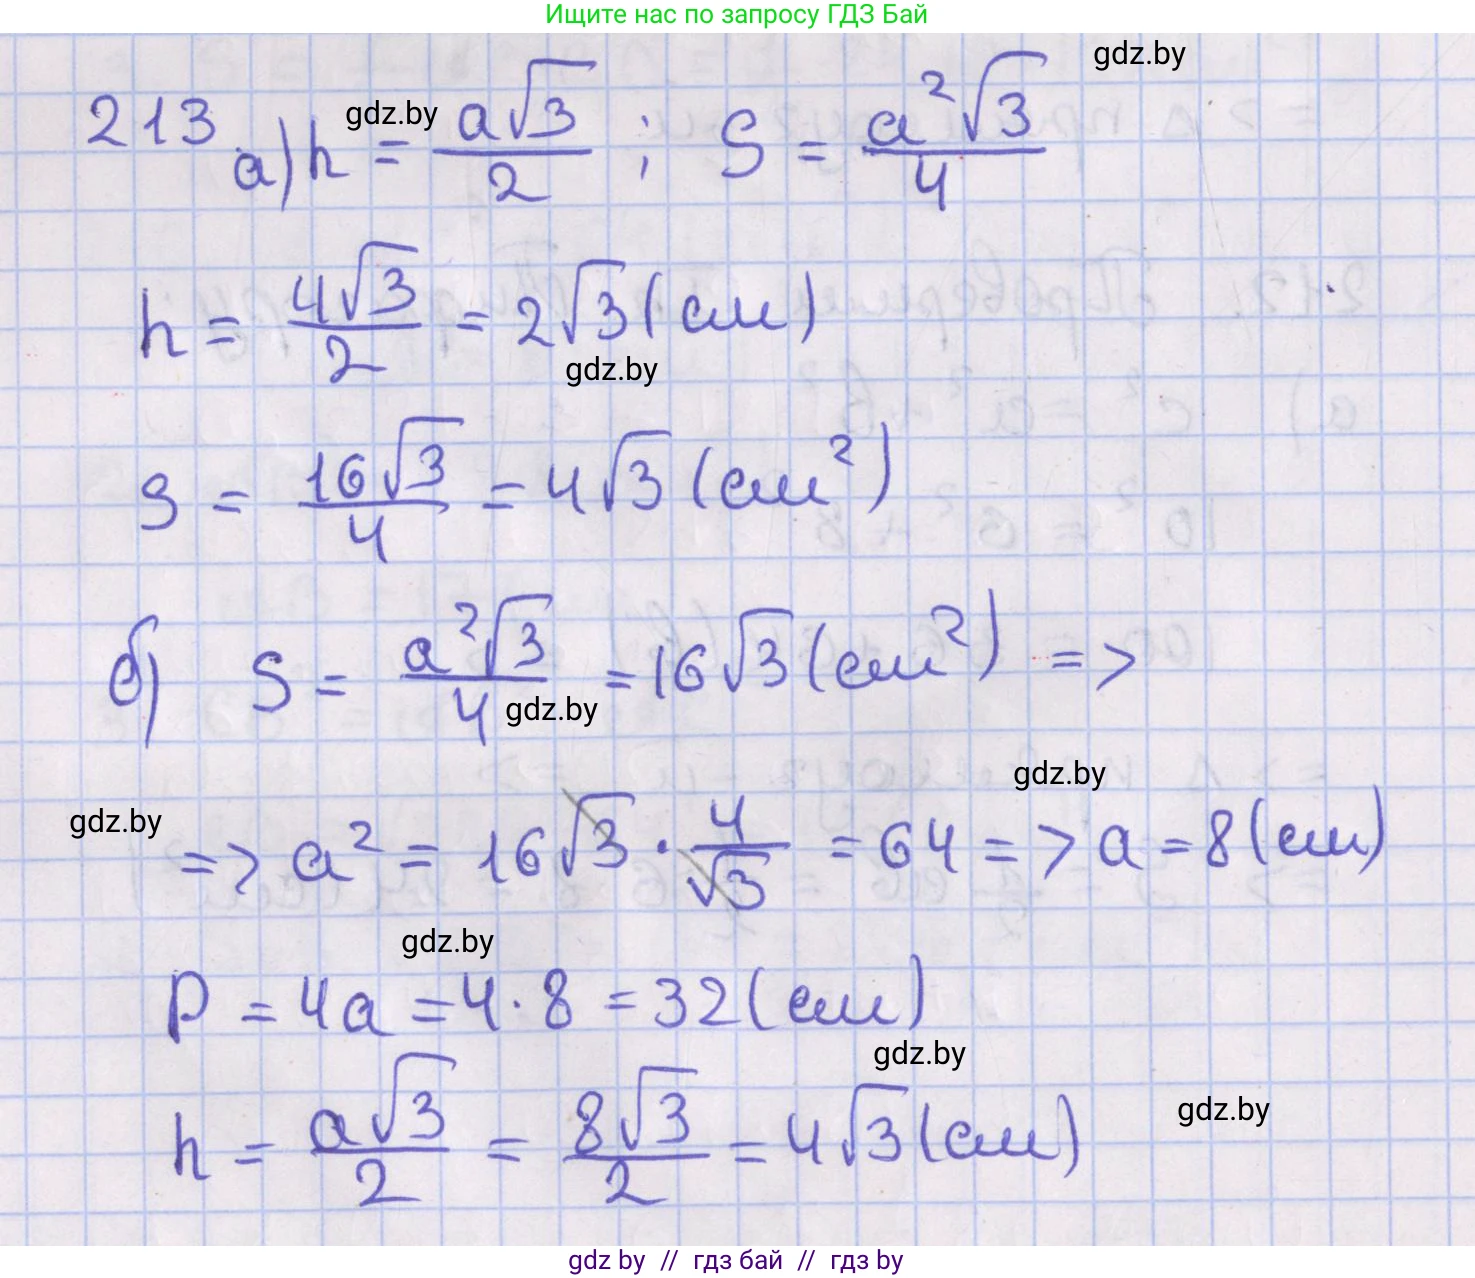 Ищите нас по запросу ГДЗ Бай
gdz.by
213 а) h = a√3/2 ; S = a²√3/4
gdz.by
h = 4√3/2 = 2√3 (см)
gdz.by
S = 16√3/4 = 4√3 (см²)
б) S = a²√3/4 = 16√3 (см²) =>
gdz.by
gdz.by
gdz.by
=> a² = 16√3 · 4/√3 = 64 => a = 8 (см)
gdz.by
P = 4a = 4 · 8 = 32 (см)
gdz.by
h = a√3/2 = 8√3/2 = 4√3 (см)
gdz.by
gdz by // гдз бай // гдз by